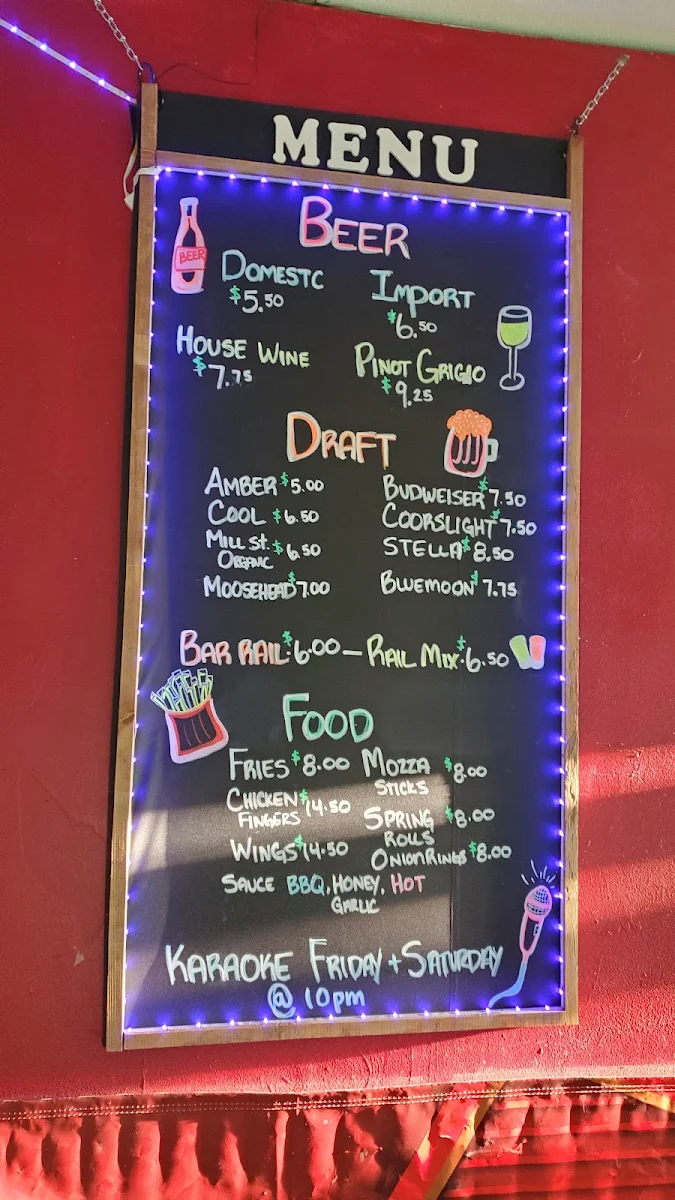 MENU
BEER
BEER
DOMESTC
$5.50
IMPORT
$6.50
HOUSE WINE
$7.75
PINOT GRIGIO
$9.25
DRAFT
AMBER $5.00
COOL $6.50
MILL ST. $6.50
ORGANIC
MOOSEHEAD $7.00
BUDWEISER $7.50
COORSLIGHT $7.50
STELLA $8.50
BLUEMOON $7.75
BAR RAIL $6.00 – RAIL MIX $6.50
FOOD
FRIES $8.00
CHICKEN $14.50
FINGERS
WINGS $14.50
MOZZA $8.00
STICKS
SPRING $8.00
ROLLS
ONION RINGS $8.00
SAUCE BBQ, HONEY, HOT
GARLIC
KARAOKE FRIDAY + SATURDAY
@ 10pm